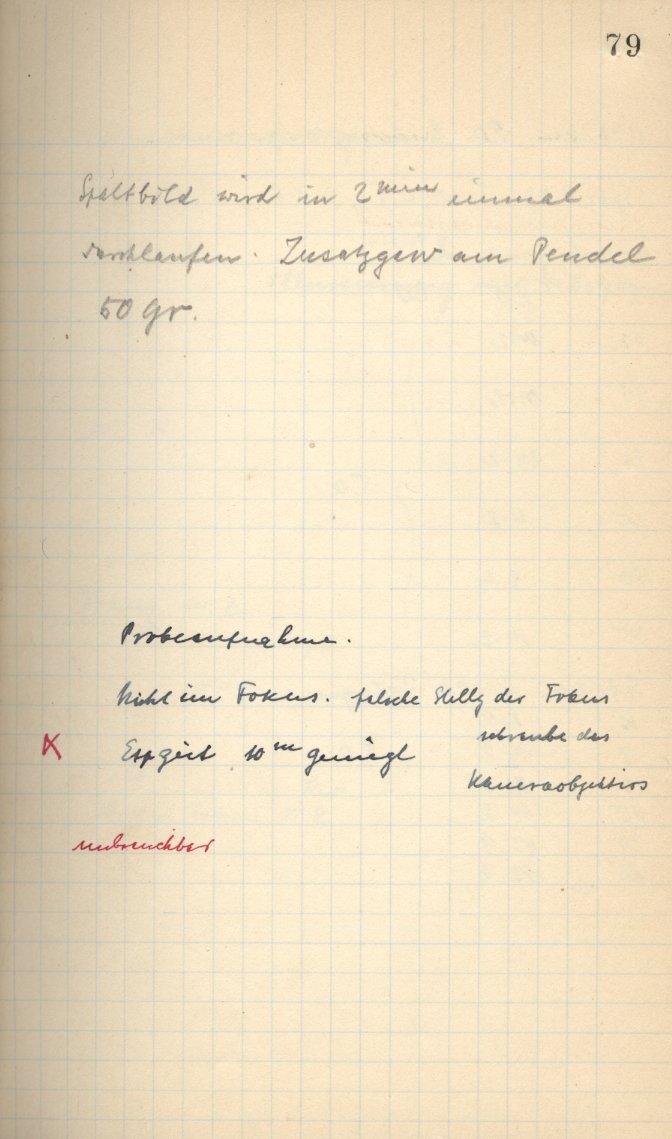 79
Spaltbild wird in 2 min einmal
durchlaufen. Zusatzgew am Pendel
50 gr.
Probeaufnahme.
Nicht im Fokus. falsche Stellg der Fokus
schraube des
Kameraobjektivs
X Exp zeit 10 m genügt
unbrauchbar